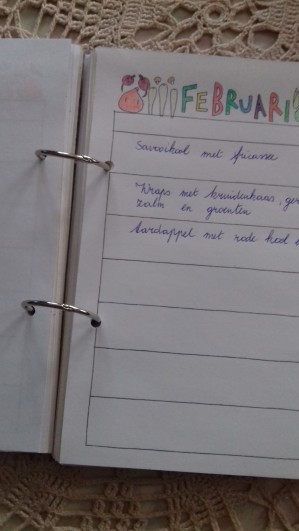 FEBRUARI
Savooikool met fricassee
Wraps met kruidenkaas, ger
zalm en groenten
Aardappel met rode kool